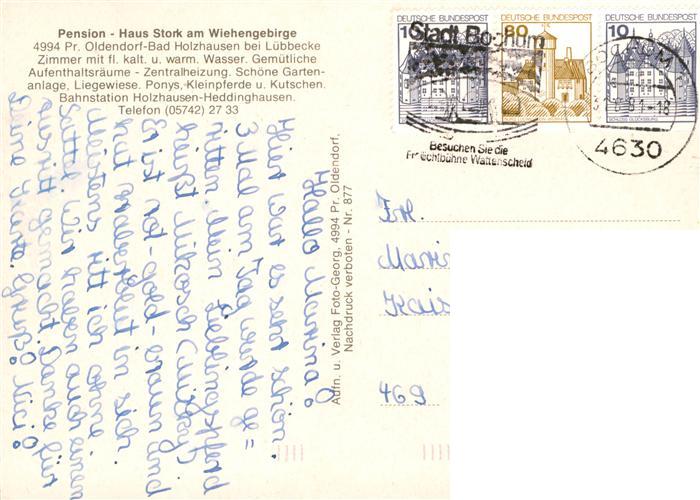 Pension - Haus Stork am Wiehengebirge
4994 Pr. Oldendorf-Bad Holzhausen bei Lübbecke
Zimmer mit fl. kalt. u. warm. Wasser. Gemütliche
Aufenthaltsräume - Zentralheizung. Schöne Garten-
anlage, Liegewiese. Ponys, Kleinpferde u. Kutschen.
Bahnstation Holzhausen-Heddinghausen.
Telefon (05742) 27 33
Hallo Marina!
Hier war es sehr schön.
3 Mal am Tag wurde ge=
ritten. Mein Lieblingspferd
heißt Mikosch (Micky)
Er ist rot-gold-braun und
hat Araberblut in sich.
Meistens ritt ich ohne
Sattel. Wir haben auch einen
Ausritt gemacht. Danke für
Deine Karte. Gruß!
Aufn. u. Verlag Foto-Georg, 4994 Pr. Oldendorf,
Nachdruck verboten - Nr. 877
DEUTSCHE BUNDESPOST
10
DEUTSCHE BUNDESPOST
80
DEUTSCHE BUNDESPOST
10
SCHLOSS GLÜCKSBURG
Stadt Bochum
Besuchen Sie die
Freilichtbühne Wattenscheid
4630
Frl.
469